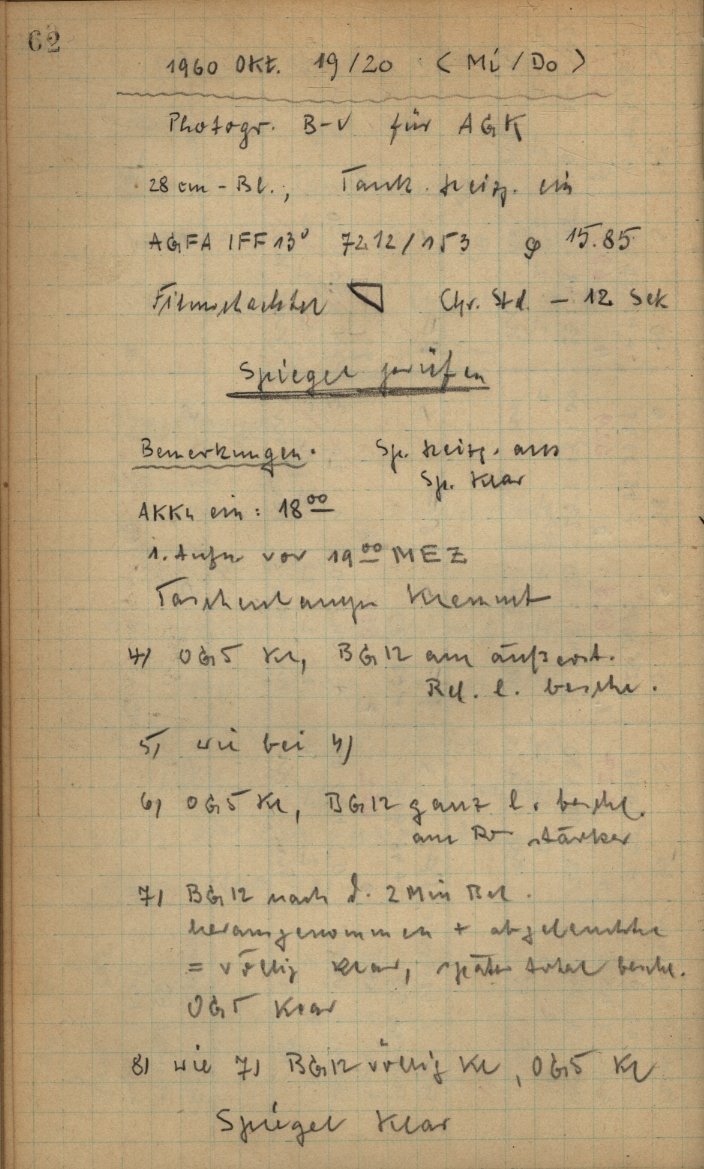 62
1960 OKT. 19/20 (Mi/Do)
Photogr. B-V für AGK
28 cm - Bl., Tauk. Heizg. ein
AGFA IFF 13° 7212/153 φ 15.85
Filmschachtel Chr. Std. - 12 Sek
Spiegel prüfen
Bemerkungen. Sp. Heizg. aus
Sp. klar
AKKu ein: 18 00
1. Aufn vor 19 00 MEZ
Taschenlampe klemmt
4) OG5 Kl, BG12 am äußerst.
Rd. l. beschl.
5) wie bei 4)
6) OG5 Kl, BG12 ganz l. beschl.
am stärker
7) BG12 nach d. 2 Min Bel.
herausgenommen + abgeleuchtet
= völlig klar, später total beschl.
OG5 klar
8) wie 7) BG12 völlig Kl, OG5 Kl
Spiegel klar